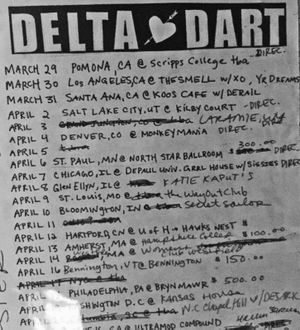 DELTA DART
DIREC.
MARCH 29 POMONA, CA @ Scripps College tba
MARCH 30 LOS ANGELES, CA @ THE SMELL W/ XO, YR DREAMS
MARCH 31 SANTA ANA, CA @ KOOS CAFE W/ DERAIL
APRIL 2 SALT LAKE CITY, UT @ KILBY COURT - DIREC.
APRIL 3 LARAMIE,
APRIL 4 DENVER, CO @ MONKEYMANIA DIREC.
APRIL 5
APRIL 6 ST. PAUL, MN @ NORTH STAR BALLROOM 300.00
APRIL 7 CHICAGO, IL @ DEPAUL UNIV. GRRL HOUSE W/ SISSIES DIREC
APRIL 8 Glen Ellyn, IL @ KATIE KAPUT'S
APRIL 9 ST. LOUIS, MO @ the Way Out Club
APRIL 10 Bloomington, IN @ Secret Sailor
APRIL 11
APRIL 12 HARTFORD, CN @ U of H - HAWKS NEST
APRIL 13 AMHERST, MA @ Hampshire College $100.00
APRIL 14 MA @
APRIL 16 Bennington, VT @ BENNINGTON $150.00
APRIL 17 NYC @ tba
PHILADELPHIA, PA @ BRYN MAWR $500.00
WASHINGTON D.C @ Kansas House
N.C Chapel Hill W/ DES ARK
GA @ ULTRAMOD COMPOUND